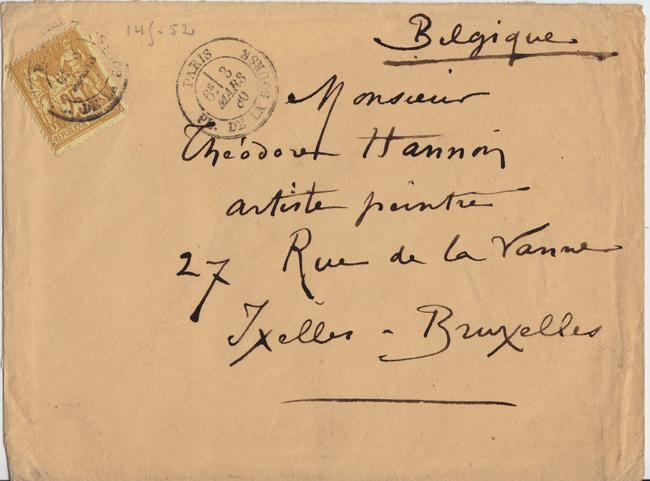 145-52
Belgique
PARIS
6E 3
MARS
80
PL. DE LA BOURSE
Monsieur
Théodore Hannon
artiste peintre
27 Rue de la Vanne
Ixelles - Bruxelles